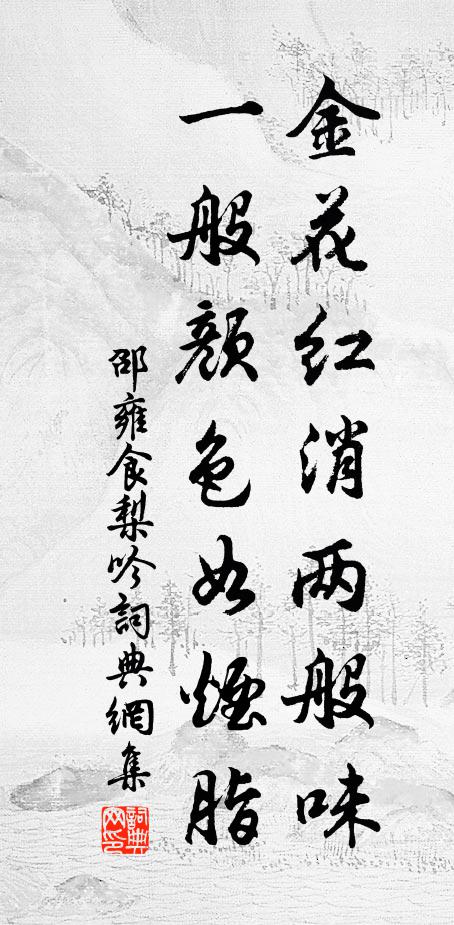 金花红消两般味
一般颜色如烟脂
邵雍食梨吟詞典網集
詞典网印